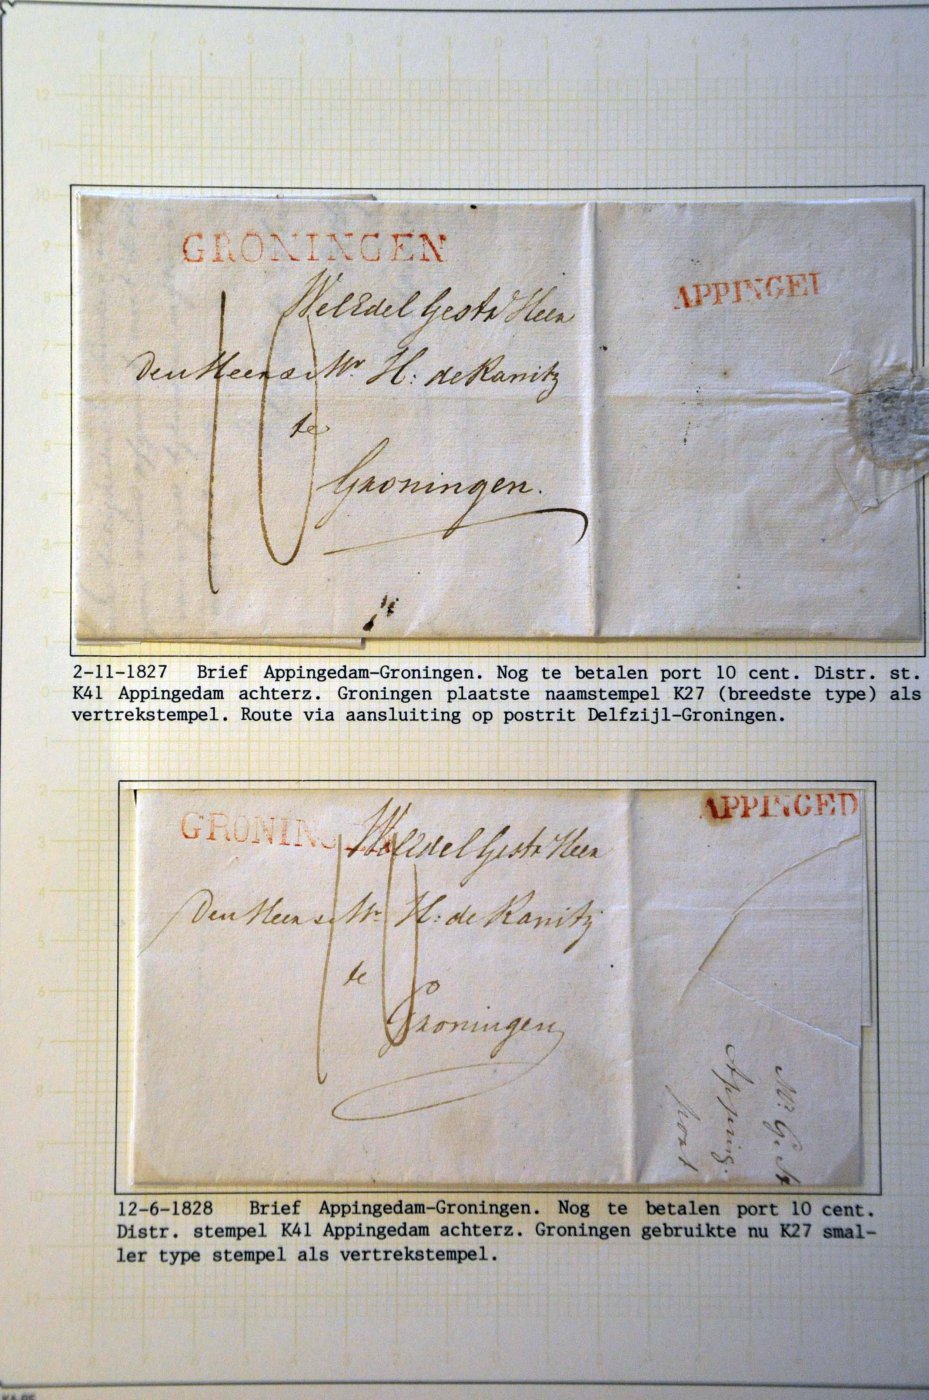 GRONINGEN
APPINGE
WelEdel Gestr Heer
Den Heere Mr. H: de Ranitz
te
10
Groningen.
2-11-1827 Brief Appingedam-Groningen. Nog te betalen port 10 cent. Distr. st.
K41 Appingedam achterz. Groningen plaatste naamstempel K27 (breedste type) als
vertrekstempel. Route via aansluiting op postrit Delfzijl-Groningen.
GRONINGEN
APPINGED
WelEdel Gestr Heer
Den Heere Mr H: de Ranitz
te
10
Groningen
Apping.
12-6-1828 Brief Appingedam-Groningen. Nog te betalen port 10 cent.
Distr. stempel K41 Appingedam achterz. Groningen gebruikte nu K27 smal-
ler type stempel als vertrekstempel.